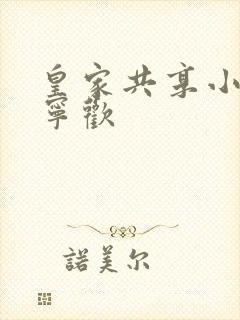 皇家共享小
寧歡
諾美尔